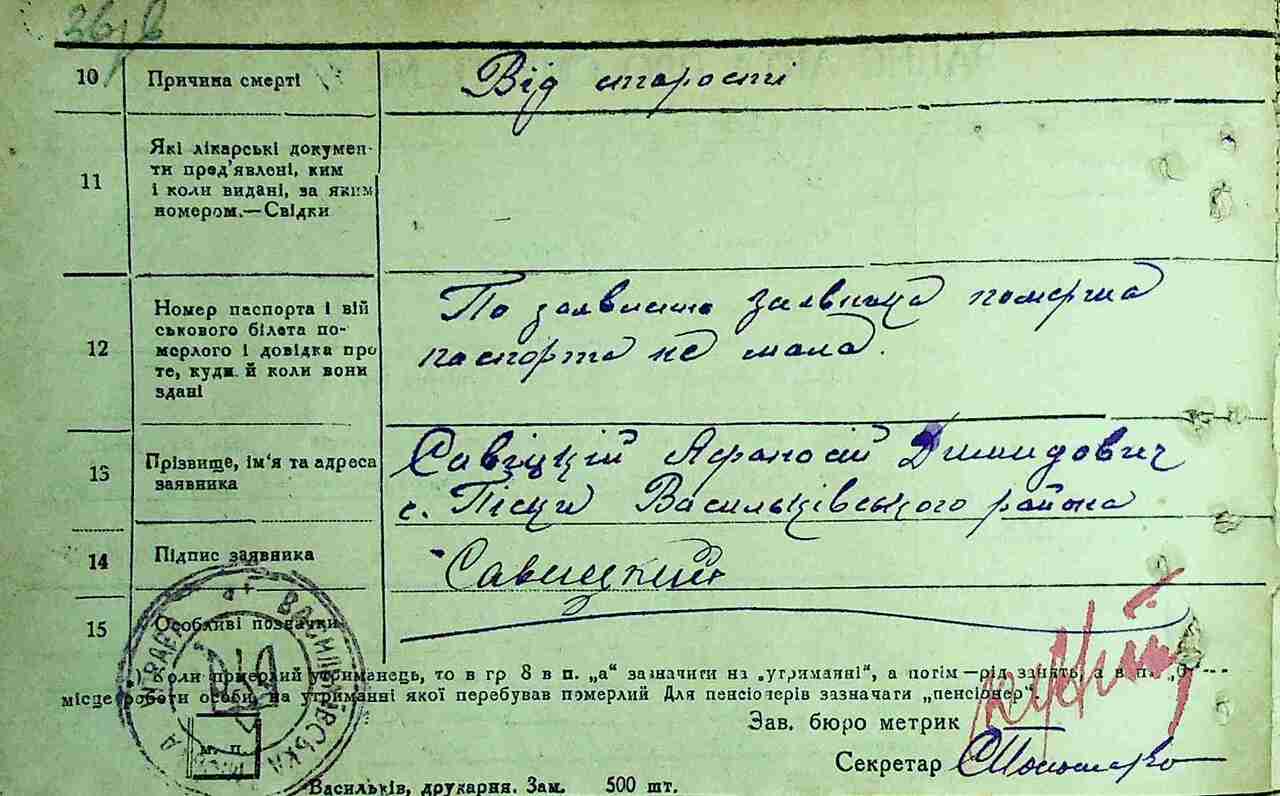 10 Причина смерті Від старості
11 Які лікарські докумен-
ти пред'явлені, ким
і коли видані, за яким
номером.—Свідки
12 Номер паспорта і вій
ськового білета по-
мерлого і довідка про
те, куди й коли вони
здані
По заявленю заявника померша
паспорта не мала.
13 Прізвище, ім'я та адреса
заявника
Савіцкій Афаносій Димидович
с. Піски Васильківського района
14 Підпис заявника Савицкий
15 Особливі позначки
Коли померлий утриманець, то в гр 8 в п. „а“ зазначити на „утриманні“, а потім—рід занять, а в п.
місце роботи особи, на утриманні якої перебував померлий Для пенсіонерів зазначати „пенсіонер“
Зав. бюро метрик
Секретар
м. п.
ВАСИЛЬКІВСЬКА МІСЬКА УПРАВА
Васильків, друкарня. Зам. 500 шт.